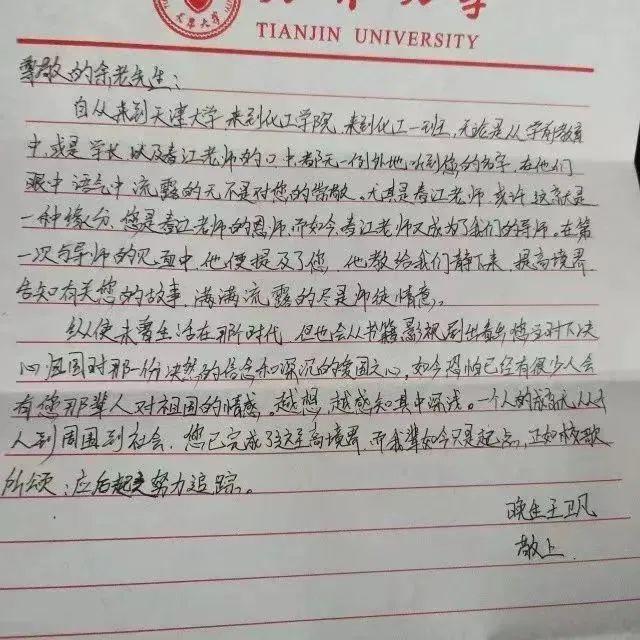 天津大学
TIANJIN UNIVERSITY
尊敬的余老先生:
自从来到天津大学,来到化工学院,来到化工一班,无论是从学前教育
中,或是学长以及春江老师的口中,都无一例外地听到您的名字,在他们
眼中语气中流露的无不是对您的崇敬。尤其是春江老师,或许这就是
一种缘分,您是春江老师的恩师,而如今,春江老师又成为了我们的导师。在第
一次与导师的见面中,他便提及了您,他教给我们静下来,提高境界,
告知有关您的故事,满满流露的尽是师徒情意。
纵使未曾生活在那个时代,但也会从书籍影视 当下决
心回国时那一份决然的信念和深沉的爱国之心,如今恐怕已经有很少人会
有您那辈人对祖国的情感,越想,越感知其中深浅。一个人的 ,从个
人到周围到社会,您已完成了这至高境界,而我辈如今只是起点,正如校歌
所颂:应后起 努力追踪。
晚生王卫凡
敬上